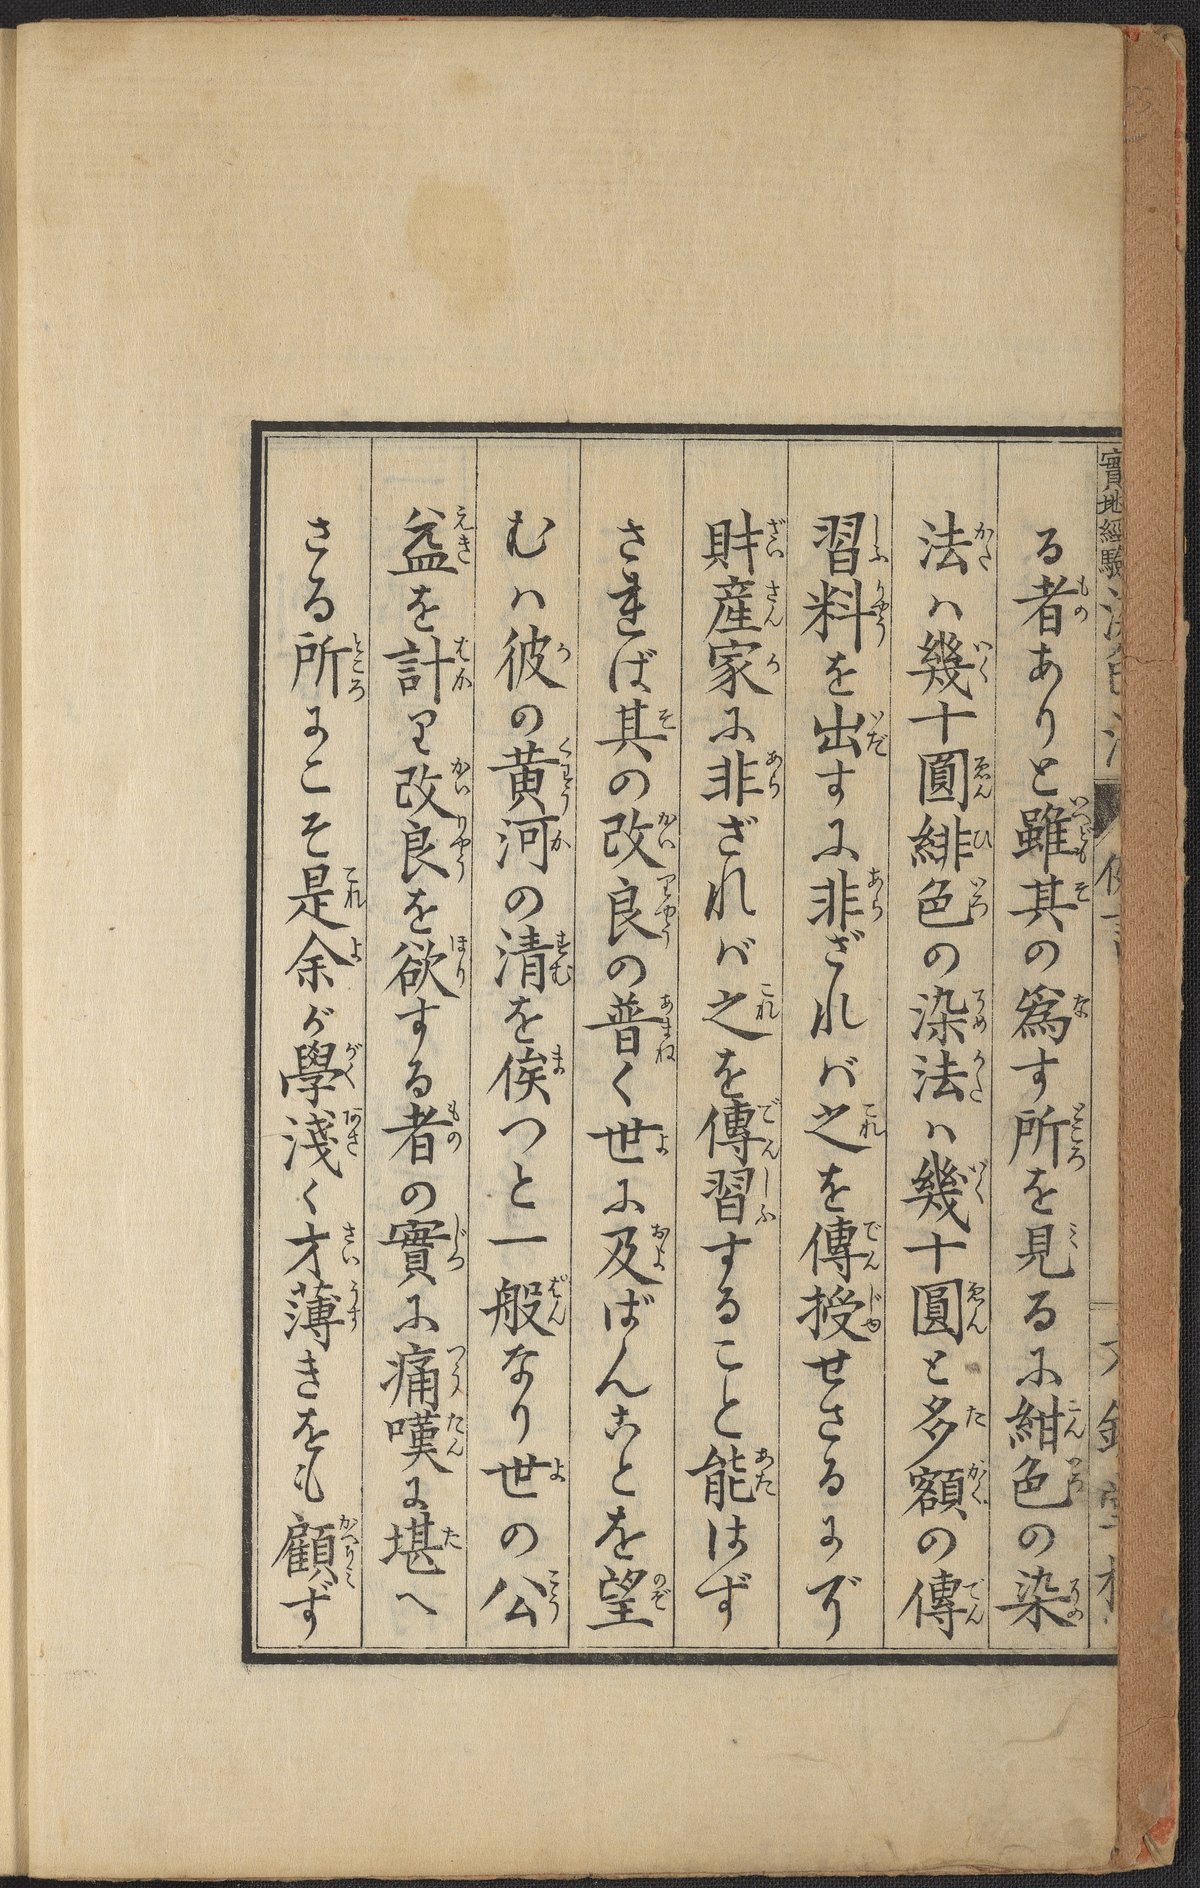 實地經驗
る者ありと雖其の爲す所を見るに紺色の染
法ハ幾十圓緋色の染法ハ幾十圓と多額の傳
習料を出すに非ざれバ之を傳授せさるにより
財産家に非ざれバ之を傳習すること能はず
されば其の改良の普く世に及ばんことを望
むハ彼の黄河の清を俟つと一般なり世の公
益を計り改良を欲する者の實に痛嘆に堪へ
さる所にこそ是余が學淺く才薄きをも顧ず